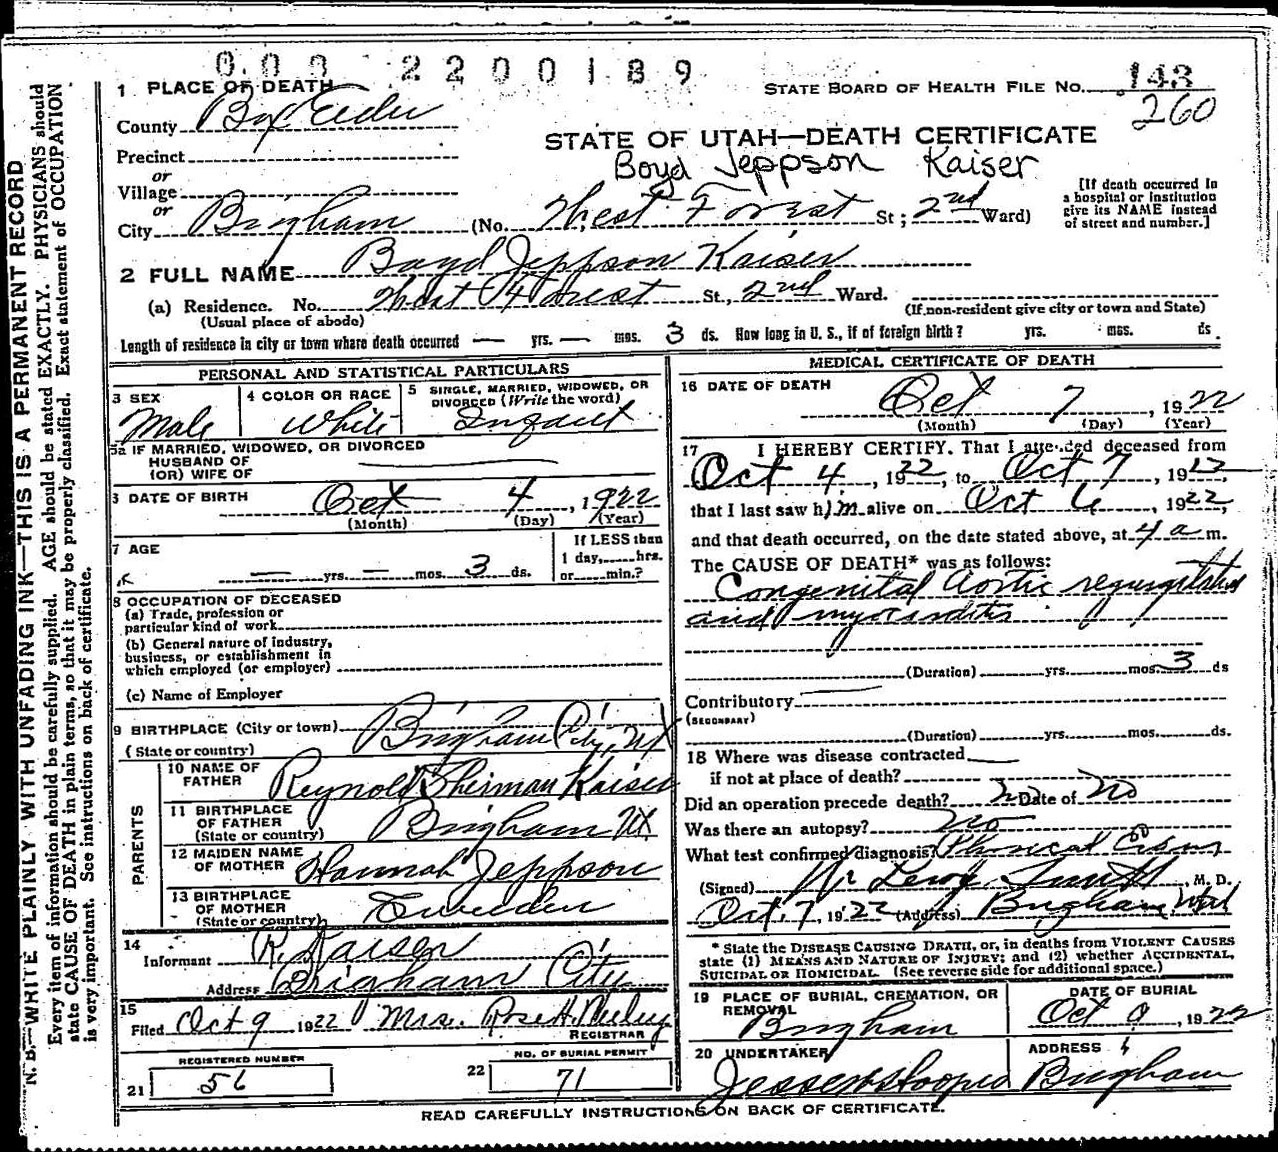 003 2200189
1 PLACE OF DEATH
STATE BOARD OF HEALTH FILE NO. 143
260
County Box Elder
STATE OF UTAH—DEATH CERTIFICATE
Precinct
Boyd Jeppson Kaiser
or
Village
or
City Brigham (No. West Forest St; 2nd Ward)
[If death occurred in
a hospital or institution
give its NAME instead
of street and number.]
2 FULL NAME Boyd Jeppson Kaiser
(a) Residence. No. West Forest St., 2nd Ward.
(Usual place of abode)
(If non-resident give city or town and State)
Length of residence in city or town where death occurred — yrs. — mos. 3 ds. How long in U. S., if of foreign birth? yrs. mos. ds.
PERSONAL AND STATISTICAL PARTICULARS
3 SEX
Male
4 COLOR OR RACE
White
5 SINGLE, MARRIED, WIDOWED, OR
DIVORCED (Write the word)
Infant
5a IF MARRIED, WIDOWED, OR DIVORCED
HUSBAND OF
(OR) WIFE OF
6 DATE OF BIRTH Oct 4, 1922
(Month) (Day) (Year)
7 AGE
— yrs. — mos. 3 ds.
If LESS than
1 day, hrs.
or min.?
8 OCCUPATION OF DECEASED
(a) Trade, profession or
particular kind of work
(b) General nature of industry,
business, or establishment in
which employed (or employer)
(c) Name of Employer
9 BIRTHPLACE (City or town) Brigham City, Ut
(State or country)
PARENTS
10 NAME OF
FATHER Reynold Sherman Kaiser
11 BIRTHPLACE
OF FATHER Brigham Ut
(State or country)
12 MAIDEN NAME
OF MOTHER Hannah Jeppson
13 BIRTHPLACE
OF MOTHER Sweden
(State or country)
14
Informant R. Kaiser
Address Brigham City
15
Filed Oct 9 1922 Mrs. Rose H.
REGISTRAR
REGISTERED NUMBER
21 56
NO. OF BURIAL PERMIT
22 71
MEDICAL CERTIFICATE OF DEATH
16 DATE OF DEATH
Oct 7, 1922
(Month) (Day) (Year)
17 I HEREBY CERTIFY. That I attended deceased from
Oct 4, 1922, to Oct 7, 1922
that I last saw him alive on Oct 6, 1922,
and that death occurred, on the date stated above, at 4 a m.
The CAUSE OF DEATH* was as follows:
Congenital Aortic regurgitation
and myocarditis
(Duration) yrs. mos. 3 ds
Contributory —
(SECONDARY)
(Duration) yrs. mos. ds.
18 Where was disease contracted
if not at place of death?
Did an operation precede death? no Date of no
Was there an autopsy? no
What test confirmed diagnosis? Physical Exam
(Signed) Smith, M. D.
Oct. 7, 1922 (Address) Brigham, Utah
* State the DISEASE CAUSING DEATH, or, in deaths from VIOLENT CAUSES
state (1) MEANS AND NATURE OF INJURY; and (2) whether ACCIDENTAL,
SUICIDAL OR HOMICIDAL. (See reverse side for additional space.)
19 PLACE OF BURIAL, CREMATION, OR
REMOVAL
Brigham
DATE OF BURIAL
Oct 9, 1922
20 UNDERTAKER
ADDRESS
Brigham
READ CAREFULLY INSTRUCTIONS ON BACK OF CERTIFICATE.
N. B.—WRITE PLAINLY WITH UNFADING INK—THIS IS A PERMANENT RECORD
Every item of information should be carefully supplied. AGE should be stated EXACTLY. PHYSICIANS should
state CAUSE OF DEATH in plain terms, so that it may be properly classified. Exact statement of OCCUPATION
is very important. See instructions on back of certificate.